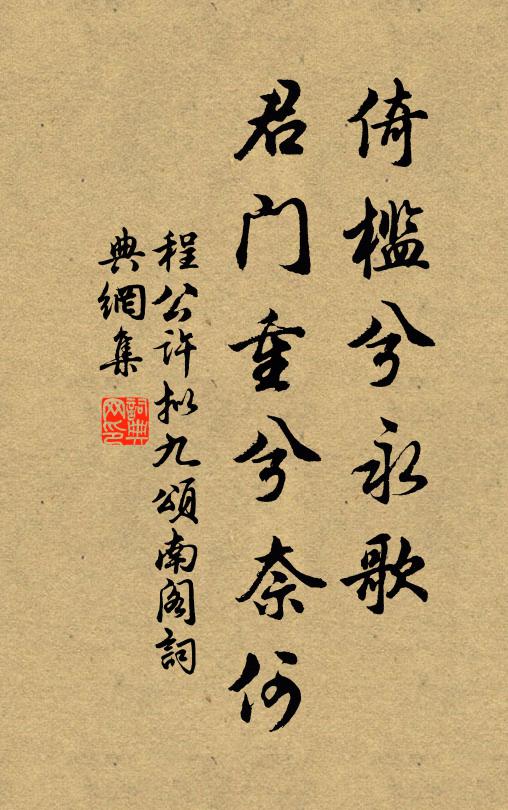 倚槛兮永歌
君门重兮奈何
程公许拟九颂南阁词
典網集
詞典网印